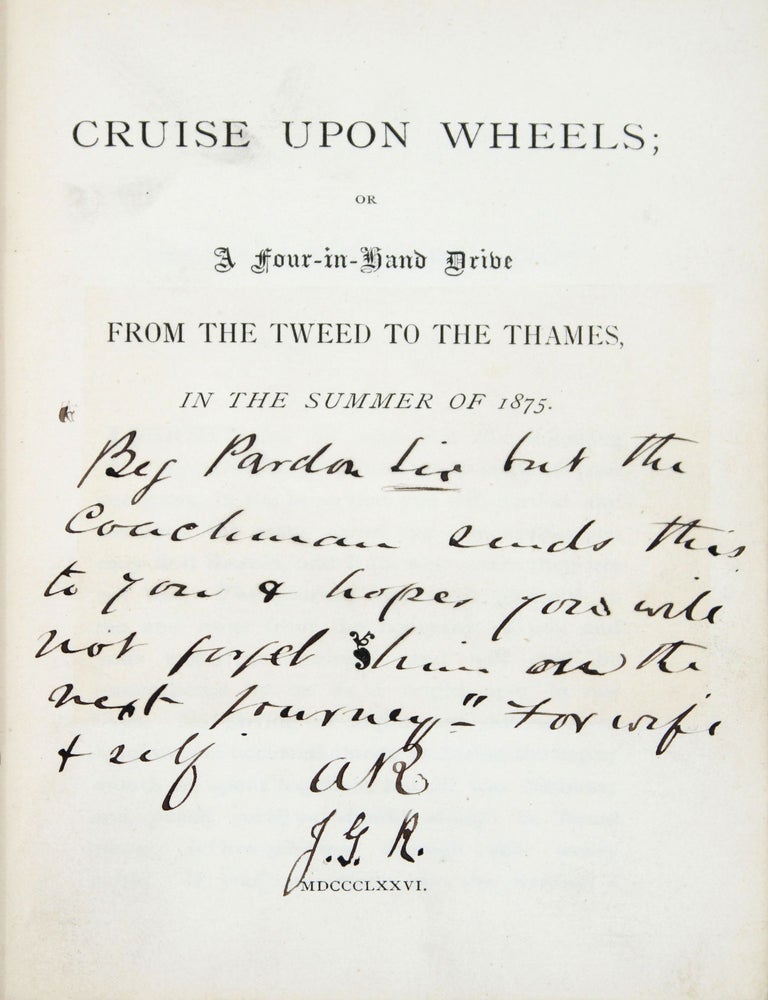 CRUISE UPON WHEELS;
OR
A Four-in-Hand Drive
FROM THE TWEED TO THE THAMES,
IN THE SUMMER OF 1875.
Beg Pardon Sir but the
Coachman sends this
to you & hopes you will
not forget him on the
next journey" - For wife
& self
AR
J.G. R.
MDCCCLXXVI.